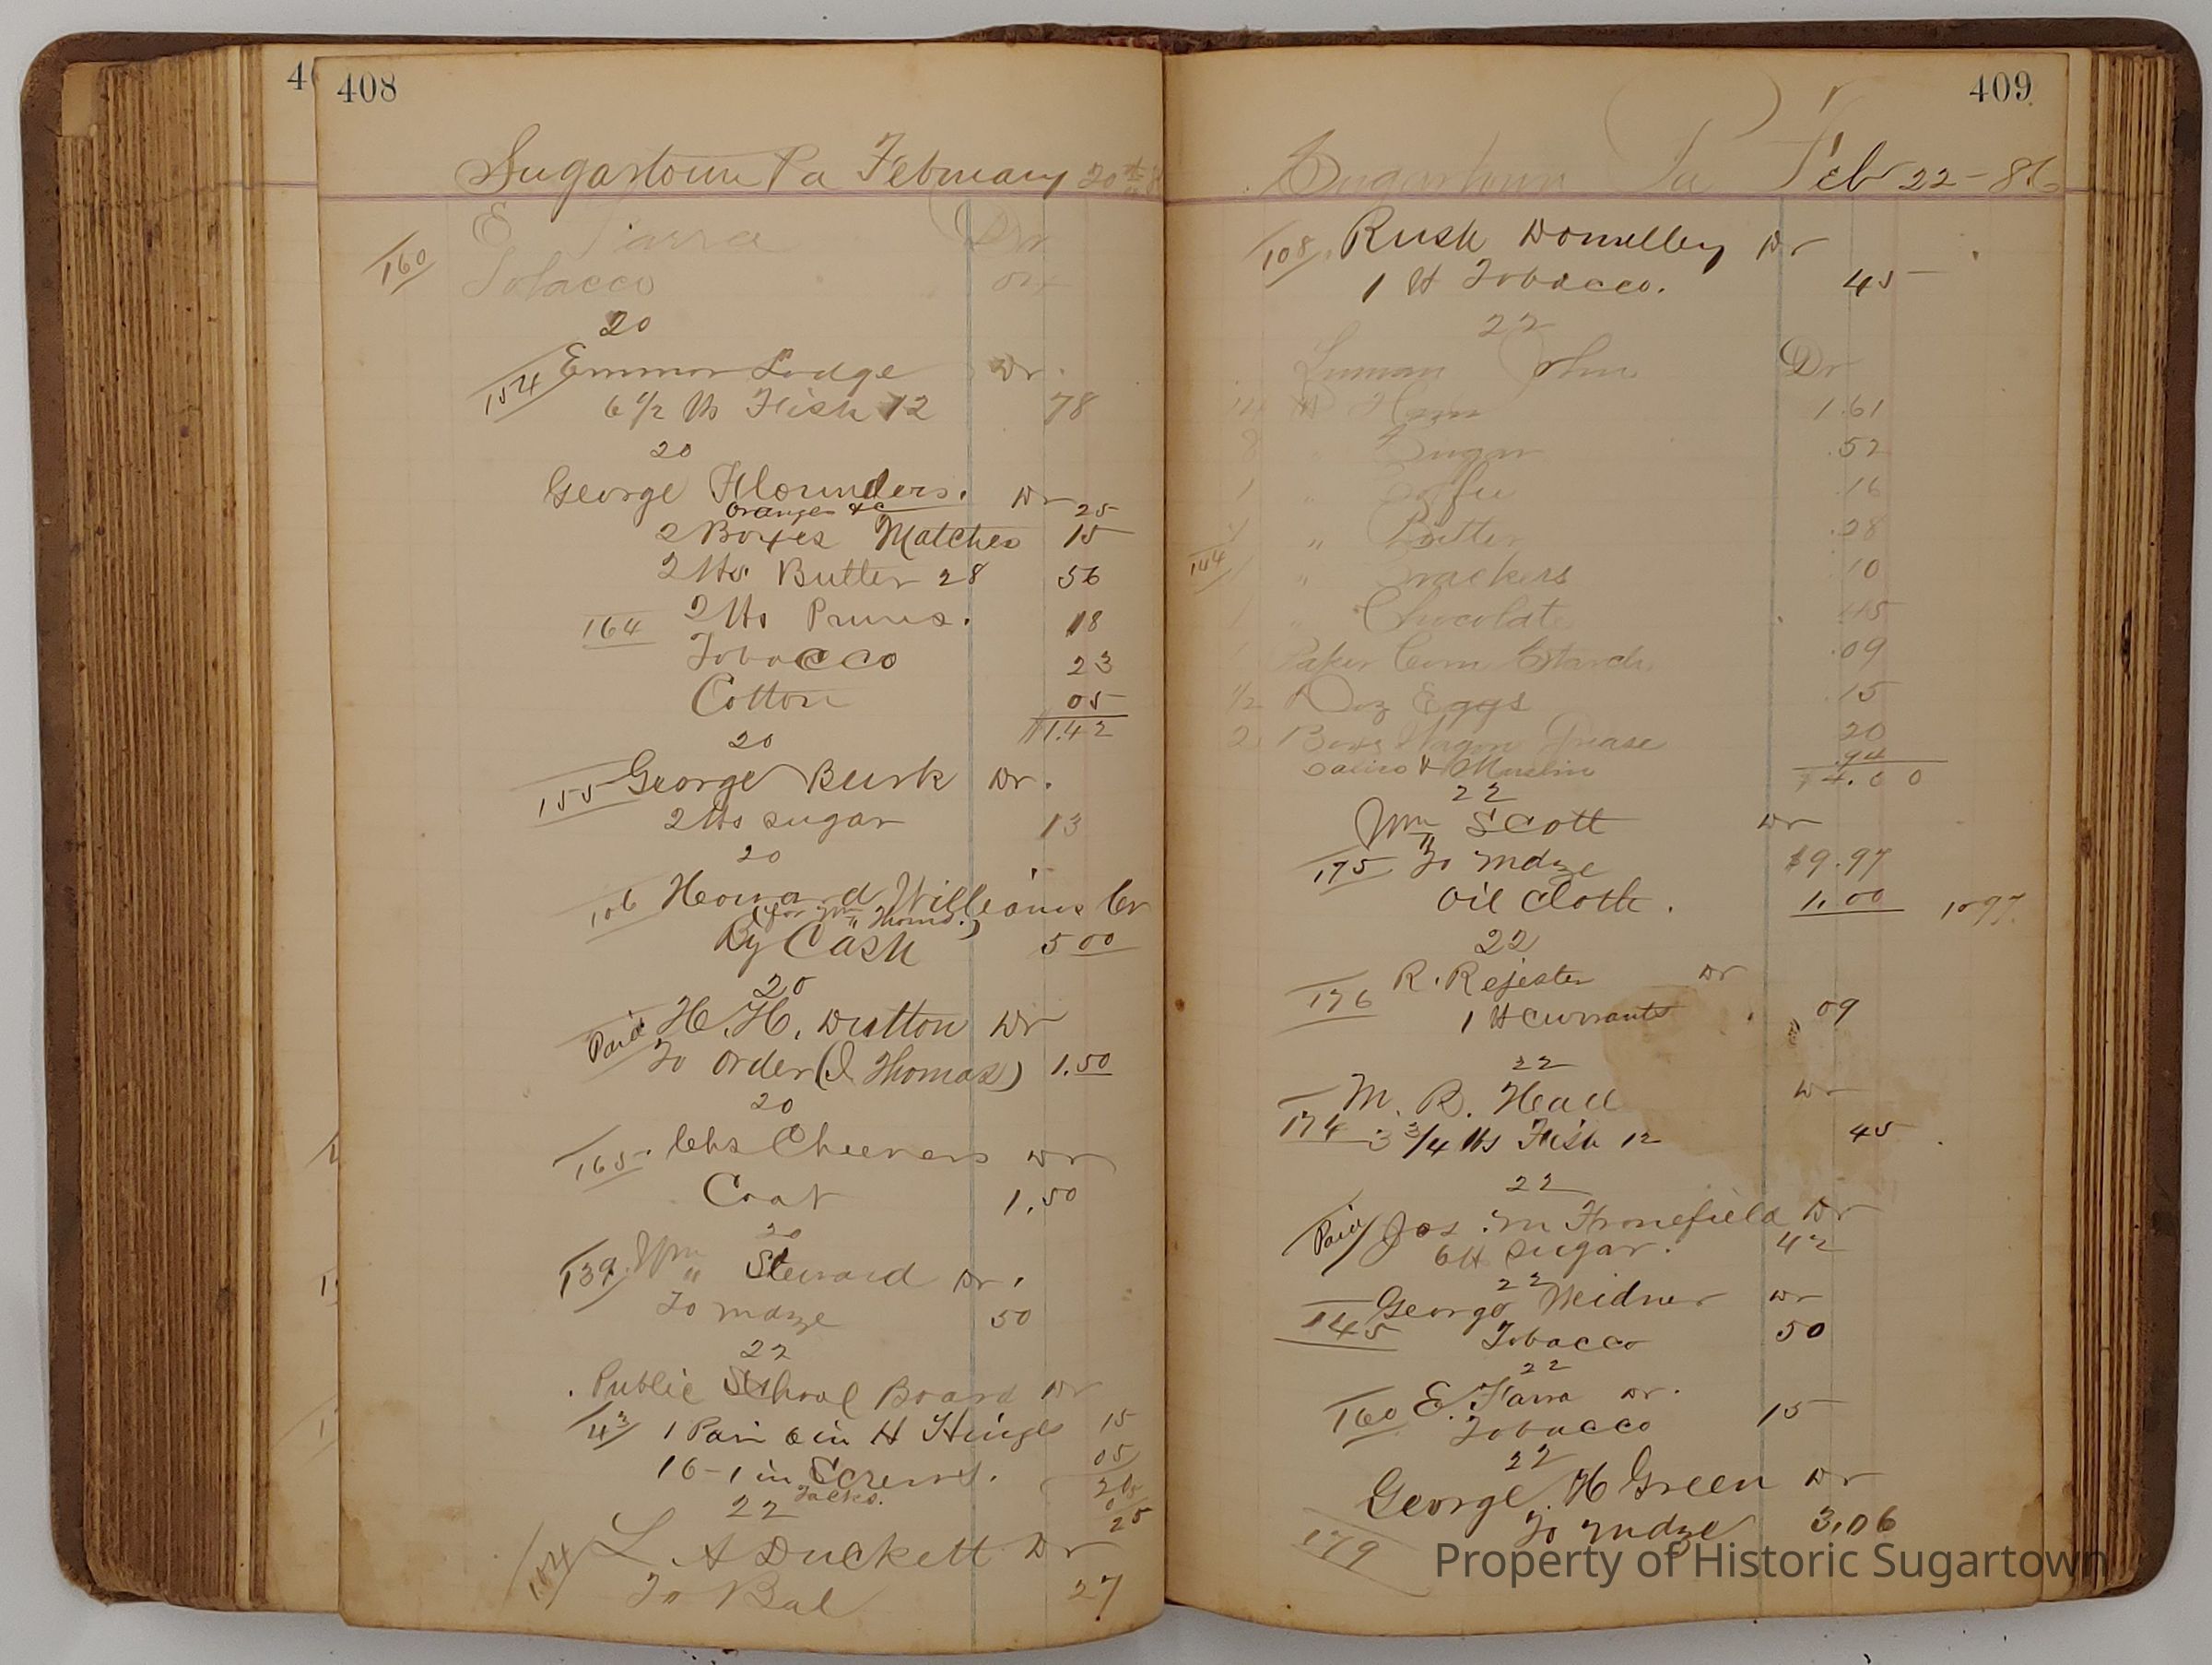 408
Sugartown Pa February 20th
E Farra Dr
160
Tobacco
20
154 Emmor Lodge Dr.
6 1/2 lbs Fish 12 78
20
George Flounders. Dr
Oranges &c 25
2 Boxes Matches 15
2 lbs Butter 28 56
164 2 lbs Pruns. 18
Tobacco 23
Cotton 05
$1.42
20
155 George Burk Dr.
2 lbs sugar 13
20
106 Howard Williams Cr
(for Wm Thomas.)
By Cash 5 00
20
Paid H. H. Dutton Dr
To Order (I Thomas) 1.50
20
165. Chs Cheevers Dr
Coat 1.50
20
139 Wm Steward Dr.
To mdze 50
22
Public School Board Dr
43 1 Pair 6 in H Hinges 15
16-1 in Screws. 05
Tacks.
22 25
104 L A Duckett Dr
To Bal 27
409
Sugartown Pa Feb 22-86
108. Rush Donnelley Dr
1 lb Tobacco. 45
22
Luman John Dr
Ham 1.61
8 " Sugar .52
1 " Coffee .16
1 " Butter .28
144 1 " Crackers 10
1 " Chocolate 45
1 Paker Corn Starch .09
1/2 Doz Eggs .15
2 Boxes Wagon Grease 20
Calico & Muslin .94
$4.60
22
Wm Scott Dr
175 To mdze $9.97
Oil Cloth. 1.00 1097
22
R. Rejester Dr
176 1 lb currants 09
22
M. B. Heall Dr
174 3 3/4 lbs Fish 12 45
22
Paid Jos. M Fronefield Dr
6 lb Sugar. 42
22
George Weidner Dr
145 Tobacco 50
22
160 E. Farra Dr.
Tobacco 15
22
George H Green Dr
179 To mdze 3.06
Property of Historic Sugartown